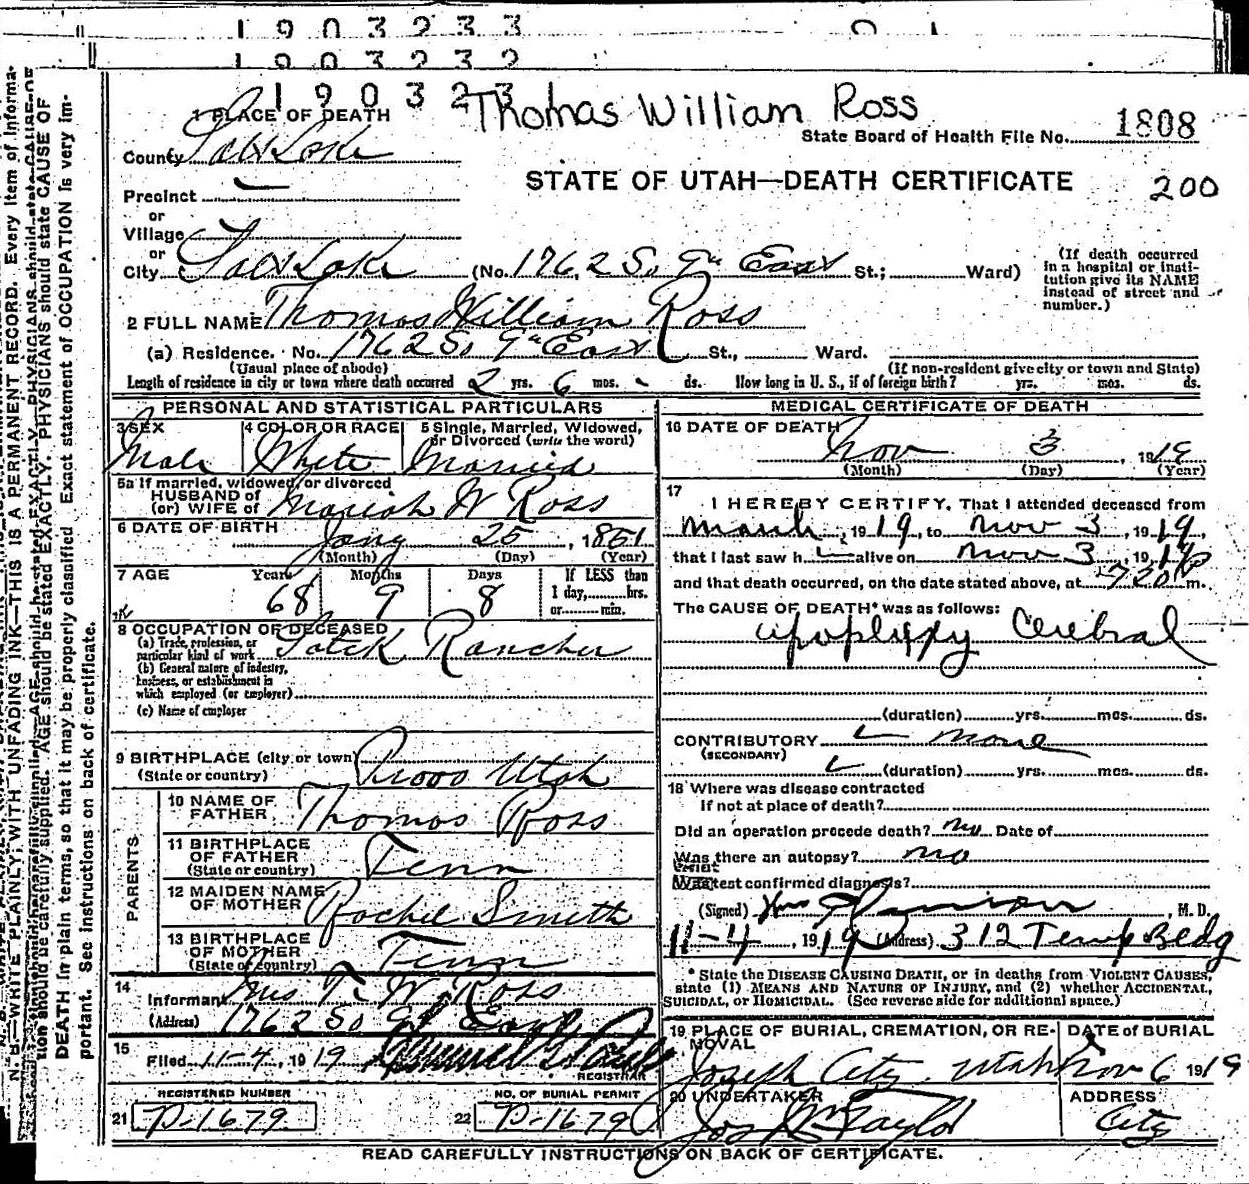 1903233
1903232
190323
Thomas William Ross
1 PLACE OF DEATH
State Board of Health File No. 1808
County Salt Lake
STATE OF UTAH—DEATH CERTIFICATE
200
Precinct
or
Village
or
City Salt Lake (No. 1762 So. 9th East St.; Ward)
(If death occurred
in a hospital or insti-
tution give its NAME
instead of street and
number.)
2 FULL NAME Thomas William Ross
(a) Residence. No. 1762 So. 9th East St., Ward.
(Usual place of abode) (If non-resident give city or town and State)
Length of residence in city or town where death occurred 2 yrs. 6 mos. - ds. How long in U. S., if of foreign birth? yrs. mos. ds.
PERSONAL AND STATISTICAL PARTICULARS
3 SEX 4 COLOR OR RACE 5 Single, Married, Widowed,
or Divorced (write the word)
Male White Married
5a If married, widowed, or divorced
HUSBAND of
(or) WIFE of Mariah W Ross
6 DATE OF BIRTH Jany 25, 1851
(Month) (Day) (Year)
7 AGE Years Months Days If LESS than
1 day, hrs.
or min.
68 9 8
8 OCCUPATION OF DECEASED
(a) Trade, profession, or
particular kind of work Rancher
(b) General nature of industry,
business, or establishment in
which employed (or employer)
(c) Name of employer
9 BIRTHPLACE (city or town)
(State or country) Provo Utah
PARENTS
10 NAME OF
FATHER Thomas Ross
11 BIRTHPLACE
OF FATHER
(State or country) Tenn
12 MAIDEN NAME
OF MOTHER Rachel Smith
13 BIRTHPLACE
OF MOTHER
(State or country) Tenn
14
Informant Mrs T. W. Ross
(Address) 1762 So 9th East
15
Filed 11-4, 1919
REGISTRAR
REGISTERED NUMBER NO. OF BURIAL PERMIT
21 P-1679 22 P-1679
MEDICAL CERTIFICATE OF DEATH
16 DATE OF DEATH
Nov 3 1919
(Month) (Day) (Year)
17
I HEREBY CERTIFY, That I attended deceased from
March, 1919, to Nov 3, 1919,
that I last saw h alive on Nov 3, 1919
and that death occurred, on the date stated above, at 720 P m.
The CAUSE OF DEATH* was as follows:
apoplexy Cerebral
(duration) yrs. mos. ds.
CONTRIBUTORY none
(SECONDARY)
(duration) yrs. mos. ds.
18 Where was disease contracted
If not at place of death?
Did an operation precede death? no Date of
Was there an autopsy? no
What test confirmed diagnosis?
(Signed) , M. D.
11-4, 1919 (Address) 312 Temp Bldg
* State the DISEASE CAUSING DEATH, or in deaths from VIOLENT CAUSES,
state (1) MEANS AND NATURE OF INJURY, and (2) whether ACCIDENTAL,
SUICIDAL, or HOMICIDAL. (See reverse side for additional space.)
19 PLACE OF BURIAL, CREMATION, OR RE-
MOVAL DATE of BURIAL
Joseph City Utah Nov 6 1919
20 UNDERTAKER ADDRESS
Jos Wm Taylor City
READ CAREFULLY INSTRUCTIONS ON BACK OF CERTIFICATE.
N. B.—WRITE PLAINLY, WITH UNFADING INK—THIS IS A PERMANENT RECORD. Every item of informa-
tion should be carefully supplied. AGE should be stated EXACTLY. PHYSICIANS should state CAUSE OF
DEATH in plain terms, so that it may be properly classified. Exact statement of OCCUPATION is very im-
portant. See instructions on back of certificate.